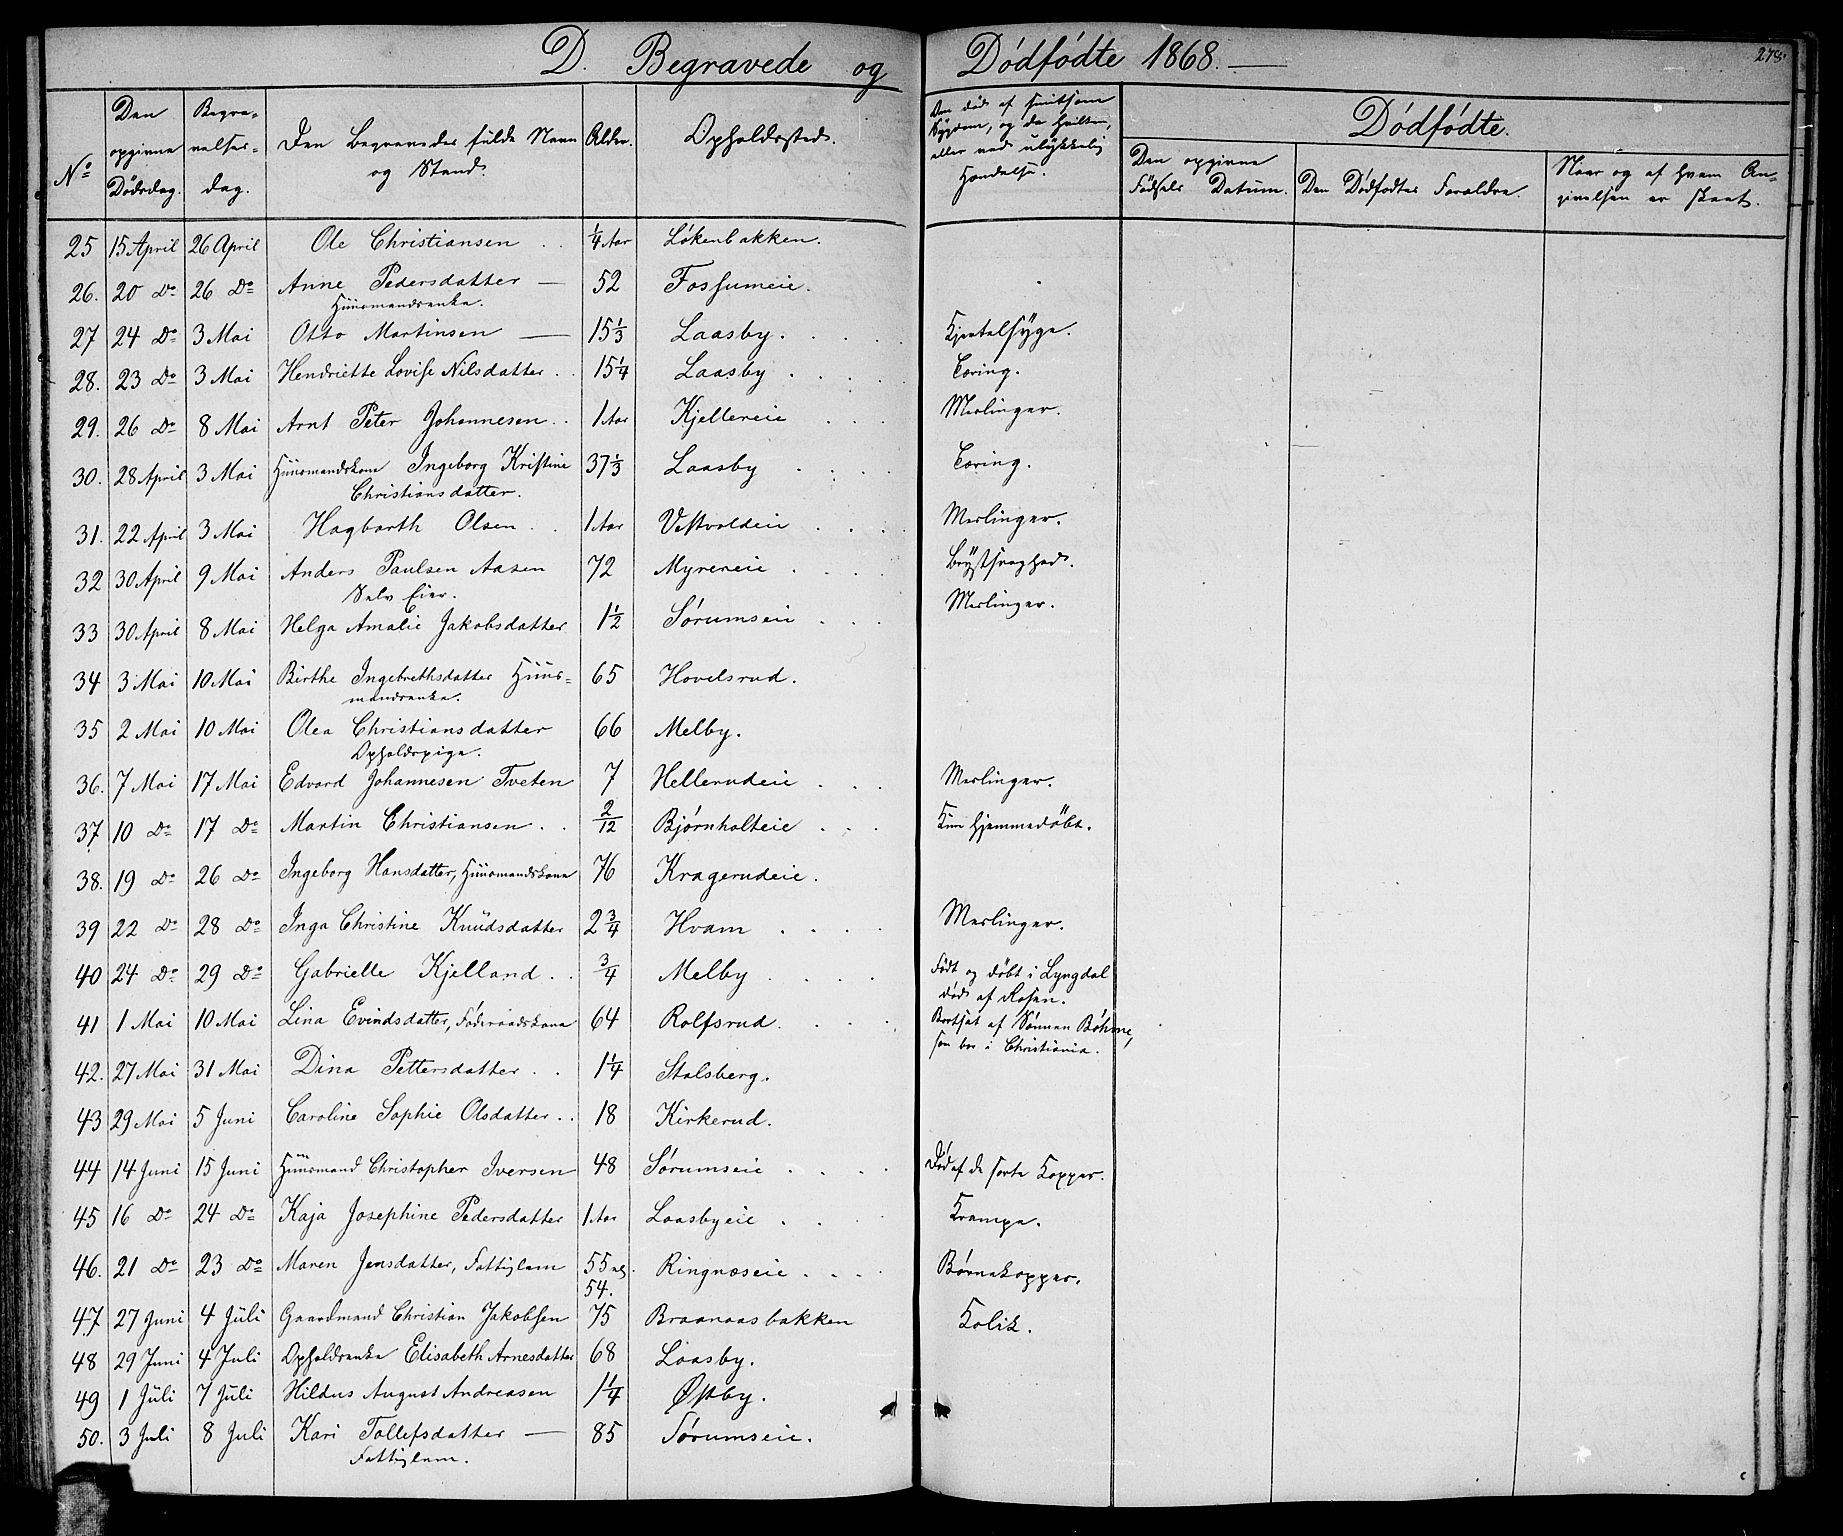 D. Begravede og Dödfödte 1868. 278.
No
Den opgivne Dödsdag.
Begravelses-dag.
Den Begravedes fulde Navn og Stand.
Alder.
Opholdssted.
Den død af smitsom Sygdom, og da hvilken, eller ved ulykkelig Hændelse.
Dödfödte.
Den opgivne Födsels Datum.
Den Dödfödtes Forældre.
Naar og af hvem Angivelsen er skeet.
25 15 April 26 April Ole Christiansen . . 1/4 Aar Løkenbakken.
26. 20 Do 26 Do Anne Pedersdatter — 52 Fossumeie.
Huusmandsenke.
27 24 Do 3 Mai Otto Martinsen — 15 1/3 Laasby. Kjertelsyge.
28. 23 Do 3 Mai Hendriette Lovise Nilsdatter . . 15 1/4 Laasby Tæring.
29. 26 Do 8 Mai Arnt Peter Johannesen . . 1 Aar Kjellereie Meslinger.
30. 28 April 3 Mai Huusmandskone Ingeborg Kristine 37 1/3 Laasby Tæring.
Christiansdatter.
31. 22 April 3 Mai Hagbarth Olsen . . 1 Aar Vestvoldeie Meslinger.
32 30 April 9 Mai Anders Paulsen Aasen 72 Myrereie Brystsvaghed.
Selv Eier.
33 30 April 8 Mai Helga Amalie Jakobsdatter 1 1/2 Sørumseie Meslinger.
34 3 Mai 10 Mai Birthe Ingebrethsdatter Huus- 65 Hovelsrud.
mandsenke.
35 2 Mai 10 Mai Olea Christiansdatter 66 Melby.
Opholdspige.
36. 7 Mai 17 Mai Edvard Johannesen Tveten 7 Hellerudeie Meslinger.
37 10 Do 17 Do Martin Christiansen . . 2/12 Bjørnholteie Kun hjemmedøbt.
38. 19 Do 26 Do Ingeborg Hansdatter, Huusmandskone 76 Kragerudeie.
39 22 Do 28 Do Inga Christine Knudsdatter 2 3/4 Hvam Meslinger.
40 24 Do 29 Do Gabrielle Kjelland . . 3/4 Melby Født og døbt i Lyngdal
død af Rosen.
41 1 Mai 10 Mai Lina Evindsdatter, Føderaadskone 64 Rolfsrud. Bortsat af Sønnen Böhme,
som bor i Christiania.
42. 27 Mai 31 Mai Dina Pettersdatter . . 1 1/4 Stalsberg.
43 29 Mai 5 Juni Caroline Sophie Olsdatter . . 18 Kirkerud.
44 14 Juni 15 Juni Huusmand Christopher Iversen 48 Sørumseie Död af de sorte Kopper.
45 16 Do 24 Do Kaja Josephine Pedersdatter 1 Aar Laasbyeie Krampe.
46. 21 Do 23 Do Maren Jensdatter, Fattiglem 55 Ringnæseie Børnekopper.
54.
47 27 Juni 4 Juli Gaardmand Christian Jakobsen 75 Braanaasbakken Kolik.
48 29 Juni 4 Juli Opholdsenke Elisabeth Arnesdatter 68 Laasby.
49 1 Juli 7 Juli Hildus August Andreasen 1 1/4 Østby.
50. 3 Juli 8 Juli Kari Tollefsdatter — 85 Sørumseie.
Fattiglem.